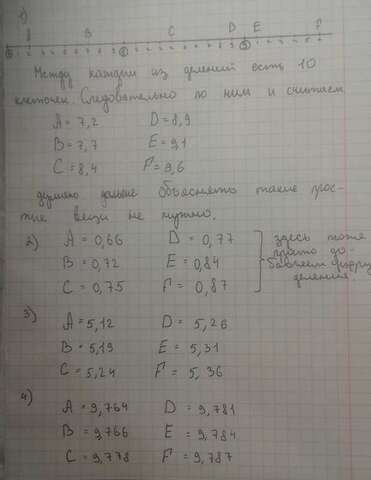 1)
A B C D E F
7 8 9
Между каждым из делений есть 10
клеточек. Следовательно по ним и считаем
A = 7,2 D = 8,9
B = 7,7 E = 9,1
C = 8,4 F = 9,6
думаю дальше объяснять такие прос-
тые вещи не нужно.
2) A = 0,66 D = 0,77
B = 0,72 E = 0,84
C = 0,75 F = 0,87
здесь тоже
просто до-
бавляем цифру
деления.
3) A = 5,12 D = 5,26
B = 5,19 E = 5,31
C = 5,24 F = 5,36
4) A = 9,764 D = 9,781
B = 9,766 E = 9,784
C = 9,778 F = 9,787